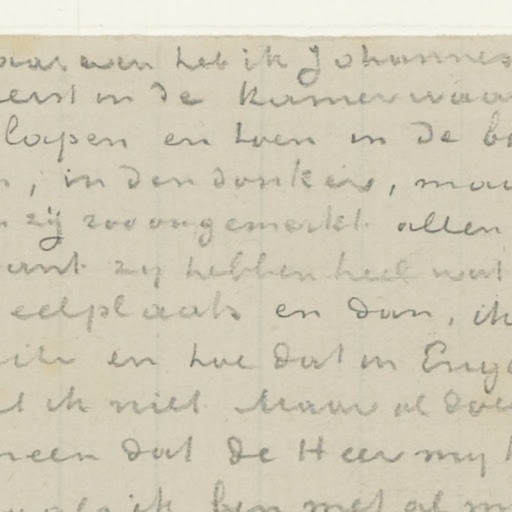 heb ik Johannes
eerst in de kamer waar
slapen en toen in de
, in den donker, maar
zij zoo ongemerkt allen
want zij hebben heel wat
eelplaats en dan, ik
en hoe dat in Enge
ik niet. Maar al
meen dat de Heer my
als ik ben met al